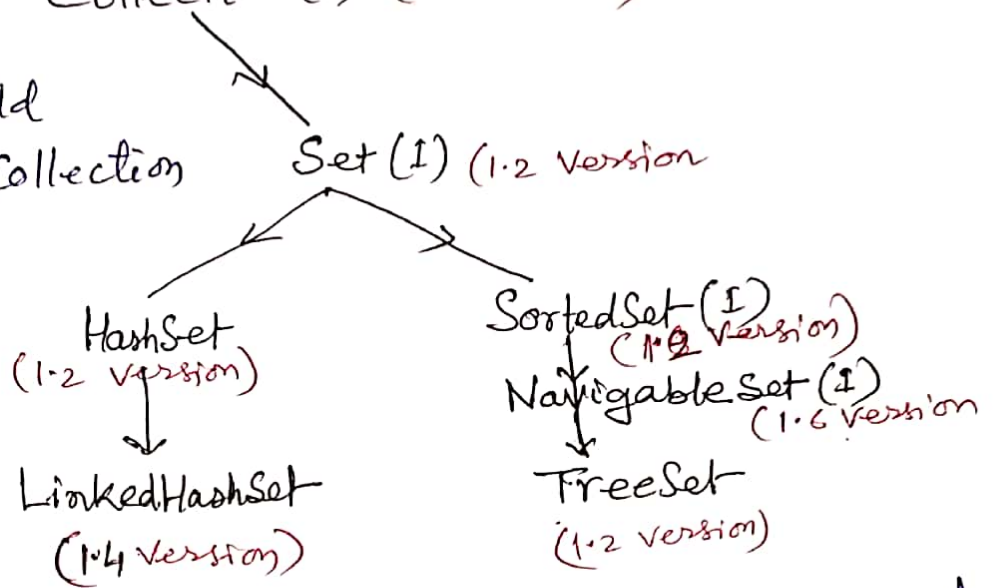 Collection
ld
Collection
Set (I) (1.2 Version
HashSet
(1.2 version)
SortedSet (I)
(1.2 Version)
NavigableSet (I)
(1.6 Version
LinkedHashSet
(1.4 Version)
TreeSet
(1.2 version)